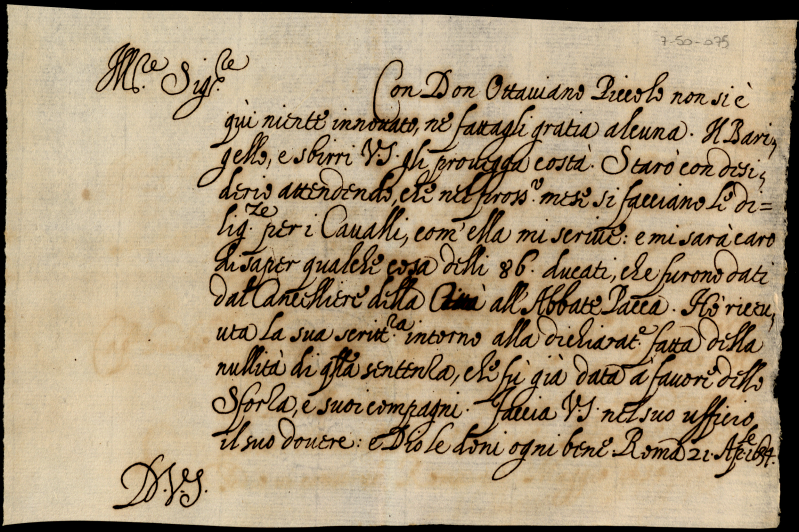 7-50-075
Ill.re Sig.re
Con Don Ottaviano Piccolo non si è
quì niente innovato, ne fattagli gratia alcuna. Il Bari,
gello, e sbirri VS. gli protegga costà. Starò con desi,
derio attendendo, che nel pross.o mese si facciano le di=
lig.ze per i Cavalli, com'ella mi scrive: e mi sarà caro
di saper qualche cosa delli 86. ducati, che furono dati
dal Cancelliere della Città all'Abbate Pacca. Hò riceu,
uta la sua scritt.a intorno alla dichiarat.e fatta della
nullità di qlla sentenza, che fù già data à favore dello
Sforza, e suoi compagni. Faccia VS. nel suo ufficio
il suo dovere: e Dio le doni ogni bene. Roma 21. Ap.le
D. VS.